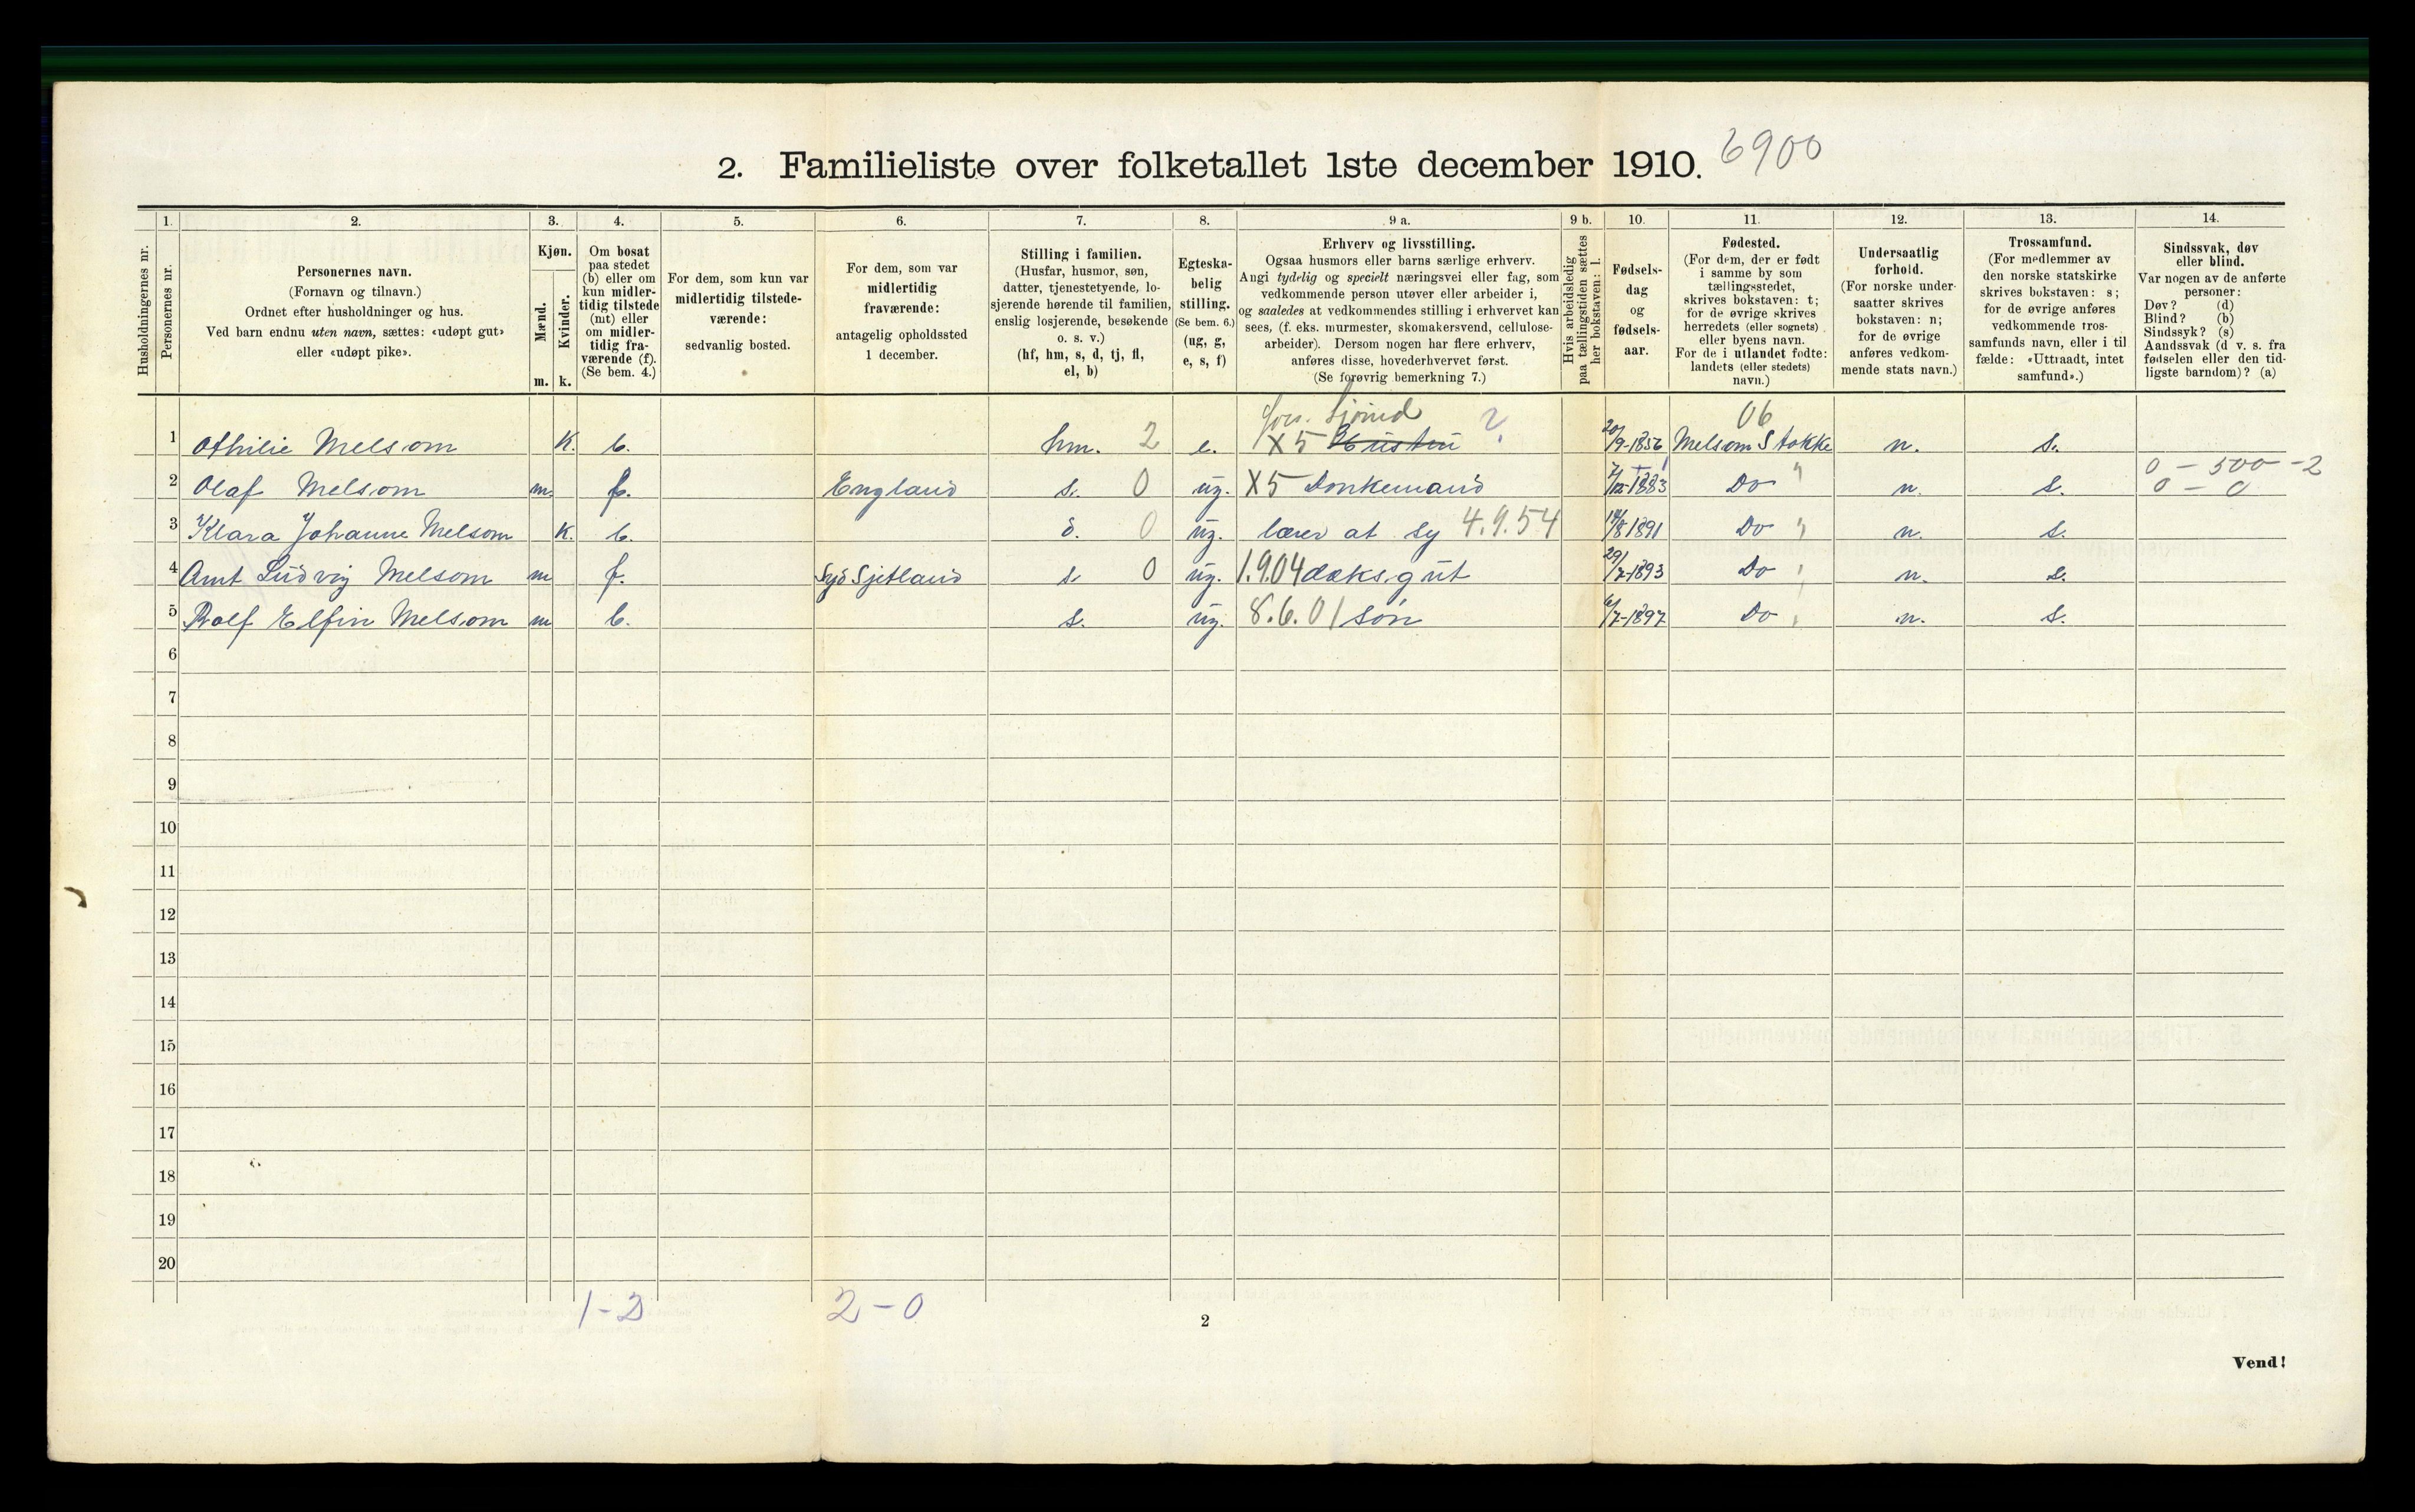 2. Familieliste over folketallet 1ste december 1910. 6900
Husholdningernes nr.
1. Personernes nr.
2. Personernes navn.
(Fornavn og tilnavn.)
Ordnet efter husholdninger og hus.
Ved barn endnu uten navn, sættes: «udøpt gut»
eller «udøpt pike».
3. Kjøn.
Mænd. m.
Kvinder. k.
4. Om bosat
paa stedet
(b) eller om
kun midler-
tidig tilstede
(mt) eller
om midler-
tidig fra-
værende (f).
(Se bem. 4.)
5. For dem, som kun var
midlertidig tilstede-
værende:
sedvanlig bosted.
6. For dem, som var
midlertidig
fraværende:
antagelig opholdssted
1 december.
7. Stilling i familien.
(Husfar, husmor, søn,
datter, tjenestetyende, lo-
sjerende hørende til familien,
enslig losjerende, besøkende
o. s. v.)
(hf, hm, s, d, tj, fl,
el, b)
8. Egteska-
belig
stilling.
(Se bem. 6.)
(ug, g,
e, s, f)
9 a. Erhverv og livsstilling.
Ogsaa husmors eller barns særlige erhverv.
Angi tydelig og specielt næringsvei eller fag, som
vedkommende person utøver eller arbeider i,
og saaledes at vedkommendes stilling i erhvervet kan
sees, (f. eks. murmester, skomakersvend, cellulose-
arbeider). Dersom nogen har flere erhverv,
anføres disse, hovederhvervet først.
(Se forøvrig bemerkning 7.)
9 b. Hvis arbeidsledig
paa tællingstiden sættes
her bokstaven: l.
10. Fødsels-
dag
og
fødsels-
aar.
11. Fødested.
(For dem, der er født
i samme by som
tællingsstedet,
skrives bokstaven: t;
for de øvrige skrives
herredets (eller sognets)
eller byens navn.
For de i utlandet fødte:
landets (eller stedets)
navn.)
12. Undersaatlig
forhold.
(For norske under-
saatter skrives
bokstaven: n;
for de øvrige
anføres vedkom-
mende stats navn.)
13. Trossamfund.
(For medlemmer av
den norske statskirke
skrives bokstaven: s;
for de øvrige anføres
vedkommende tros-
samfunds navn, eller i til
fælde: «Uttraadt, intet
samfund».)
14. Sindssvak, døv
eller blind.
Var nogen av de anførte
personer:
Døv? (d)
Blind? (b)
Sindssyk? (s)
Aandssvak (d v. s. fra
fødselen eller den tid-
ligste barndom)? (a)
06
1 Othilie Melsom K. b. hm. 2 e. X5 ? 20/9-1856 Melsom Stokke n. s.
0 - 500 - 2
2 Olaf Melsom m. f. England s. 0 ug. X5 Donkemand 7/12-1883 Do " n. s. 0 - 0
3 Klara Johanne Melsom K. b. d. 0 ug. lærer at sy 4.9.54 14/8 1891 Do " n. s.
4 Arnt Ludvig Melsom m f. Syd Sjetland s 0 ug. 1.9.04 dæksgut 29/7-1893 Do " n. s.
5 Rolf Elfin Melsom m b. s. ug. 8.6.01 søn 6/7-1897 Do " n. s.
6
7
8
9
10
11
12
13
14
15
16
17
18
19
20
1-2 2-0
2
Vend!